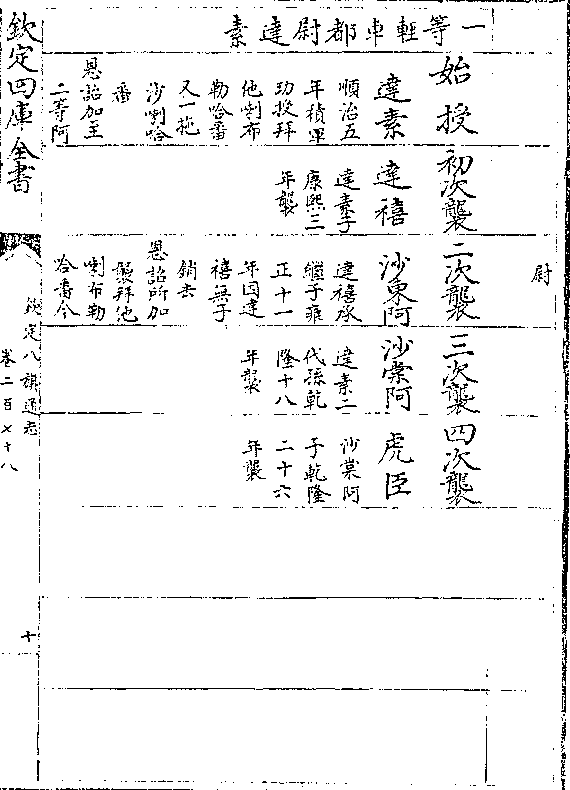 尉
一等輕車都尉達素
始授
達素
順治五
年積軍
功授拜
他喇布
勒哈番
又一拖
沙喇哈
番
恩詔加至
二等阿
初次襲
達禧
達素子
康熙三
年襲
二次襲
沙東阿
達禧承
繼子雍
正十一
年因達
禧無子
銷去
恩詔所加
襲拜他
喇布勒
哈番今
三次襲
沙棠阿
達素二
代孫乾
隆十八
年襲
四次襲
虎臣
沙棠阿
子乾隆
二十六
年襲
欽定四庫全書
欽定八旗通志
卷二百七十八
十